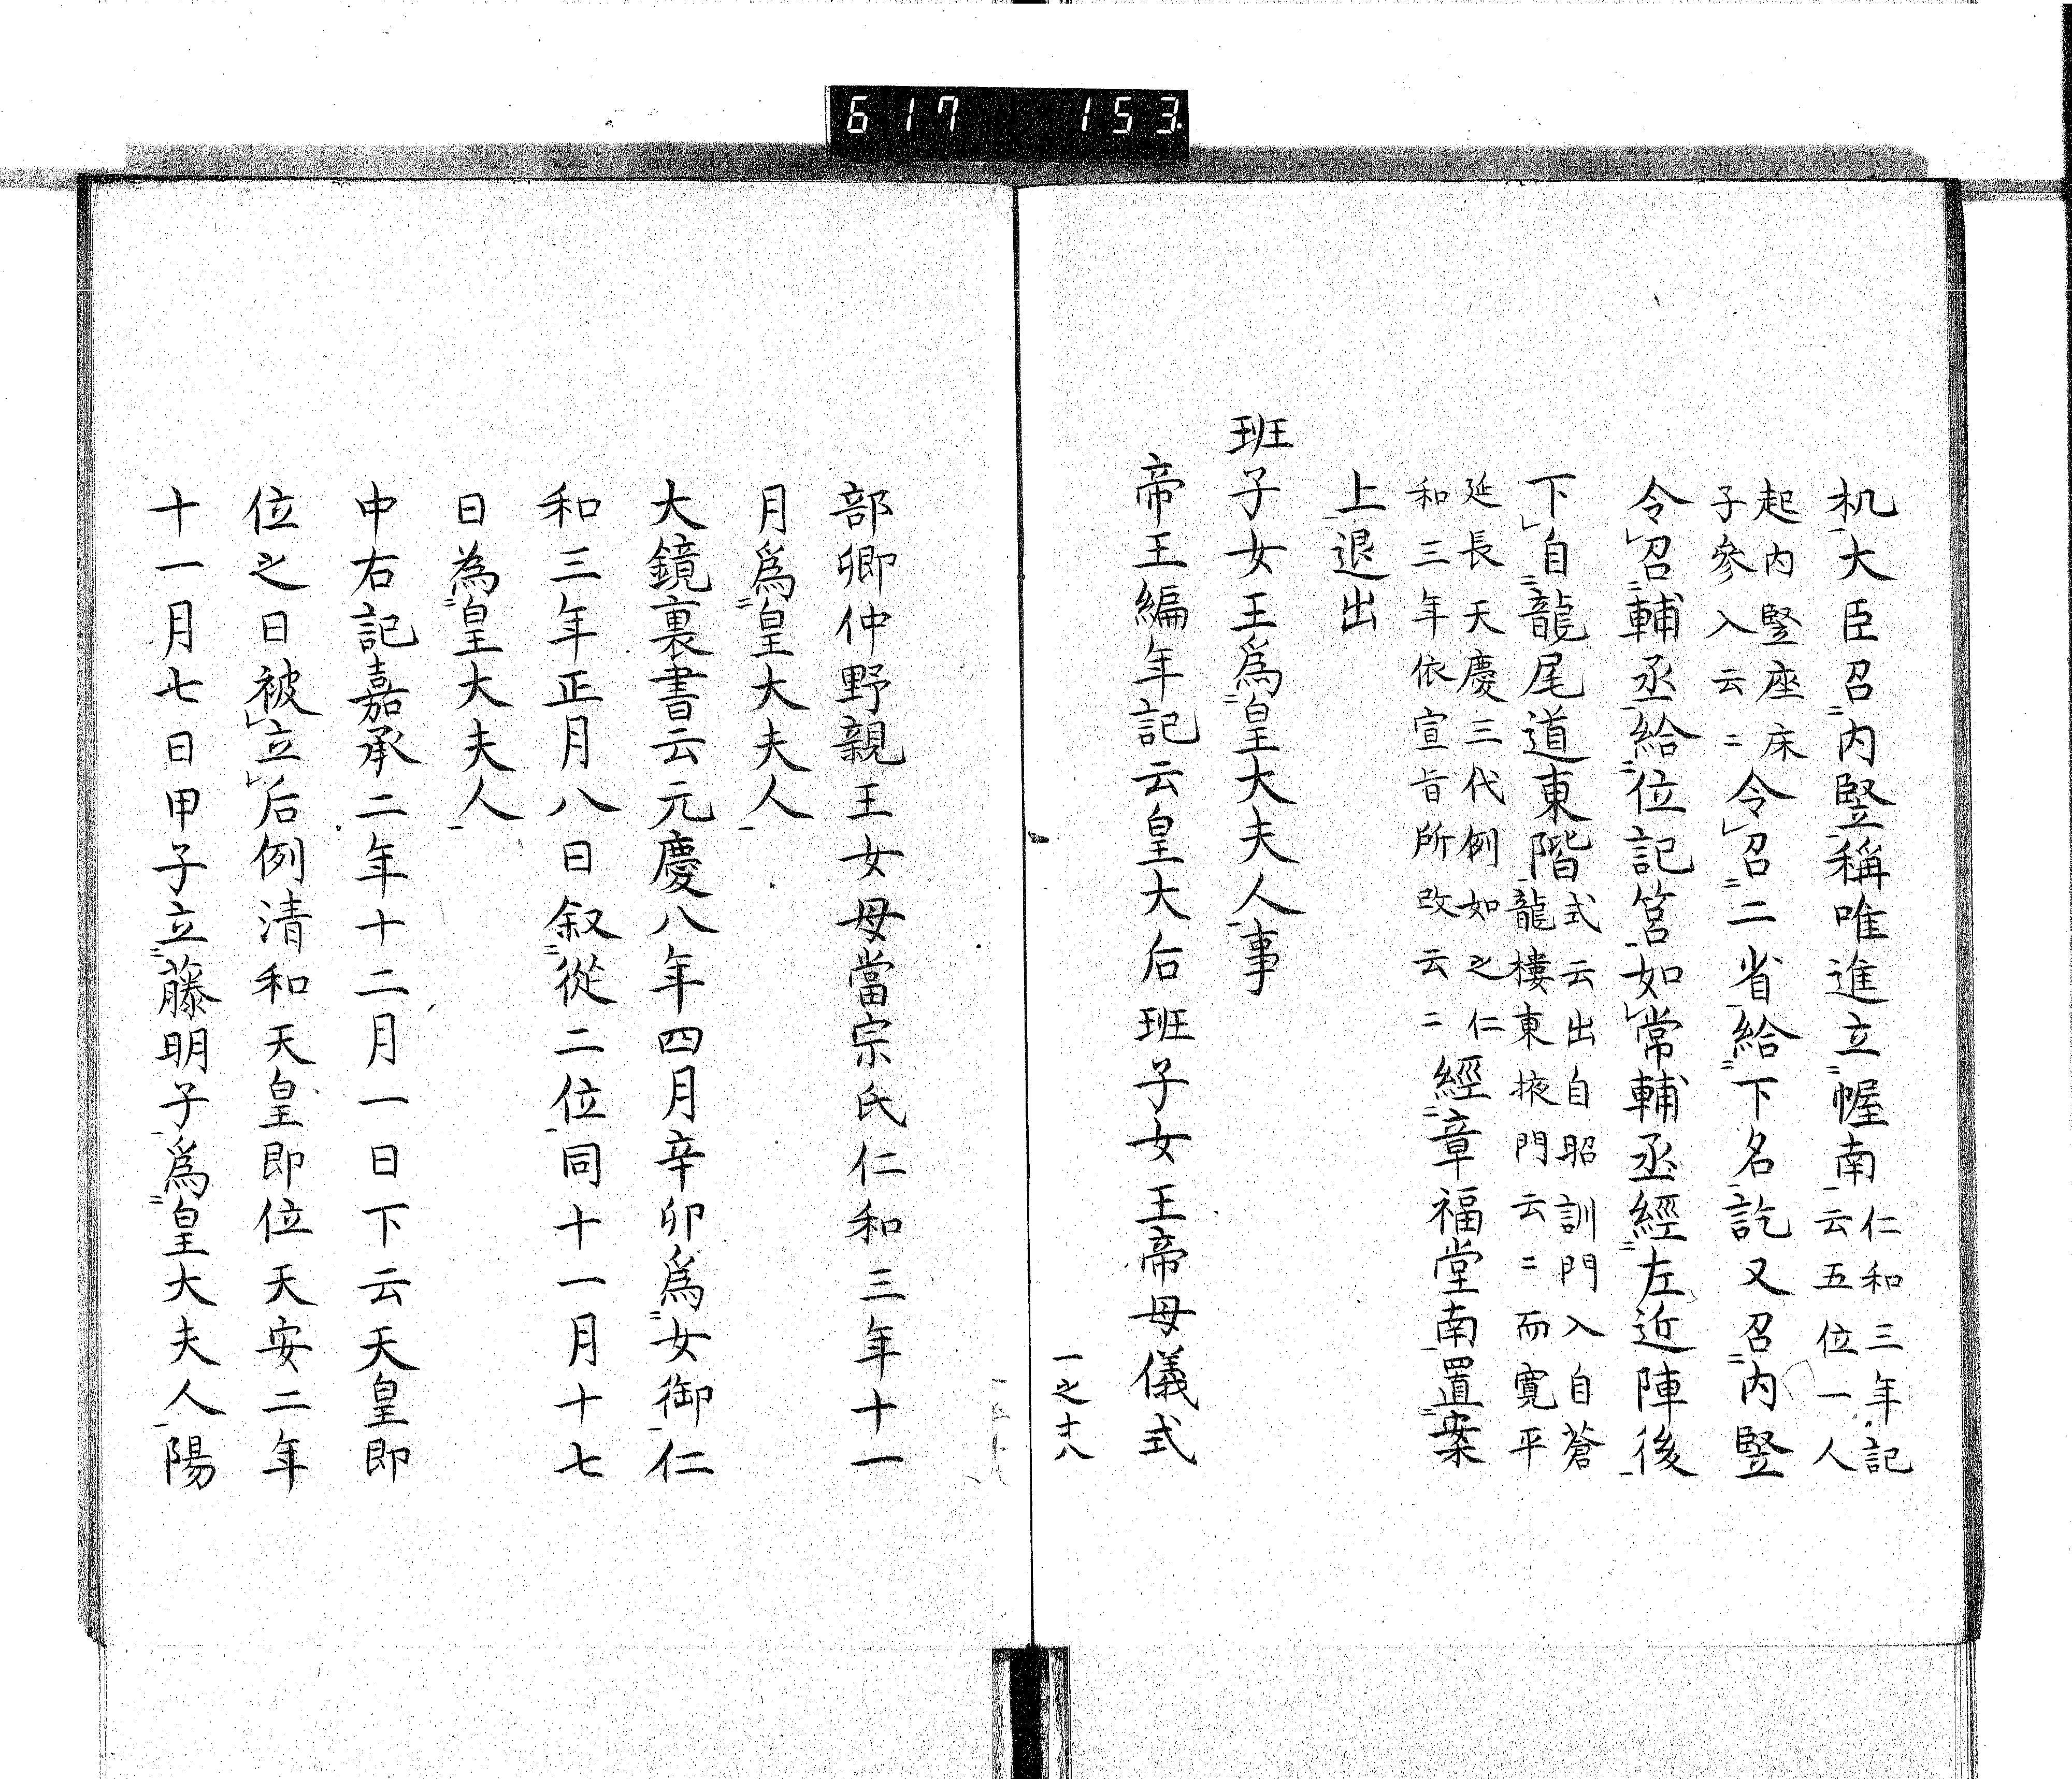 617 153.
机大臣召内竪稱唯進立幄南仁和三年記
云五位一人
起内竪座床
子參入云〻令召二省給下名訖又召内竪
令召輔丞給位記筥如常輔丞經左近陣後
下自龍尾道東階式云出自昭訓門入自蒼
龍樓東掖門云〻而寛平
延長天慶三代例如之仁
和三年依宣旨所改云〻經章福堂南置案
上退出
班子女王爲皇大夫人事
帝王編年記云皇大后班子女王帝母儀式
一之十八
部卿仲野親王女母當宗氏仁和三年十一
月爲皇大夫人
大鏡裏書云元慶八年四月辛卯爲女御仁
和三年正月八日叙從二位同十一月十七
日為皇大夫人
中右記嘉承二年十二月一日下云天皇即
位之日被立后例清和天皇即位天安二年
十一月七日甲子立藤明子爲皇大夫人陽